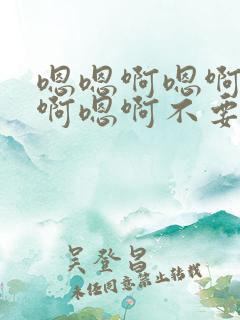 嗯嗯啊嗯啊
啊嗯啊不要
吴登昌
未经同意禁止转载